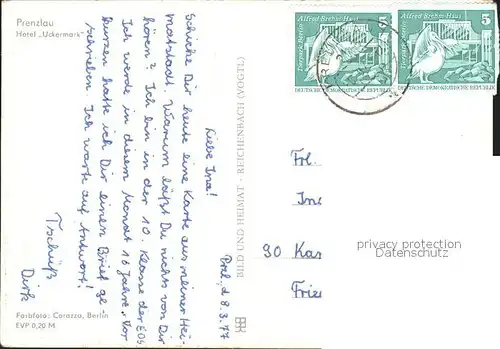 Prenzlau
Hotel „Uckermark"
Przl., d 8.3.77
Liebe Ina!
Schicke Dir heute eine Karte aus meiner Hei-
matstadt. Warum läßt Du nichts von Dir
hören? Ich bin in der 10. Klasse der EOS.
Ich werde in diesem Monat 16 Jahre. Vor
kurzen hatte ich Dir einen Brief ge-
schrieben. Ich warte auf Antwort!
Tschüß
Dirk
Farbfoto: Corazza, Berlin
EVP 0,20 M
BILD UND HEIMAT · REICHENBACH (VOGTL)
Alfred-Brehm-Haus 5
Tierpark Berlin
DEUTSCHE DEMOKRATISCHE REPUBLIK
Alfred-Brehm-Haus 5
Tierpark Berlin
DEUTSCHE DEMOKRATISCHE REPUBLIK
Frl.
In
90 Ka
Frie
privacy protection
Datenschutz